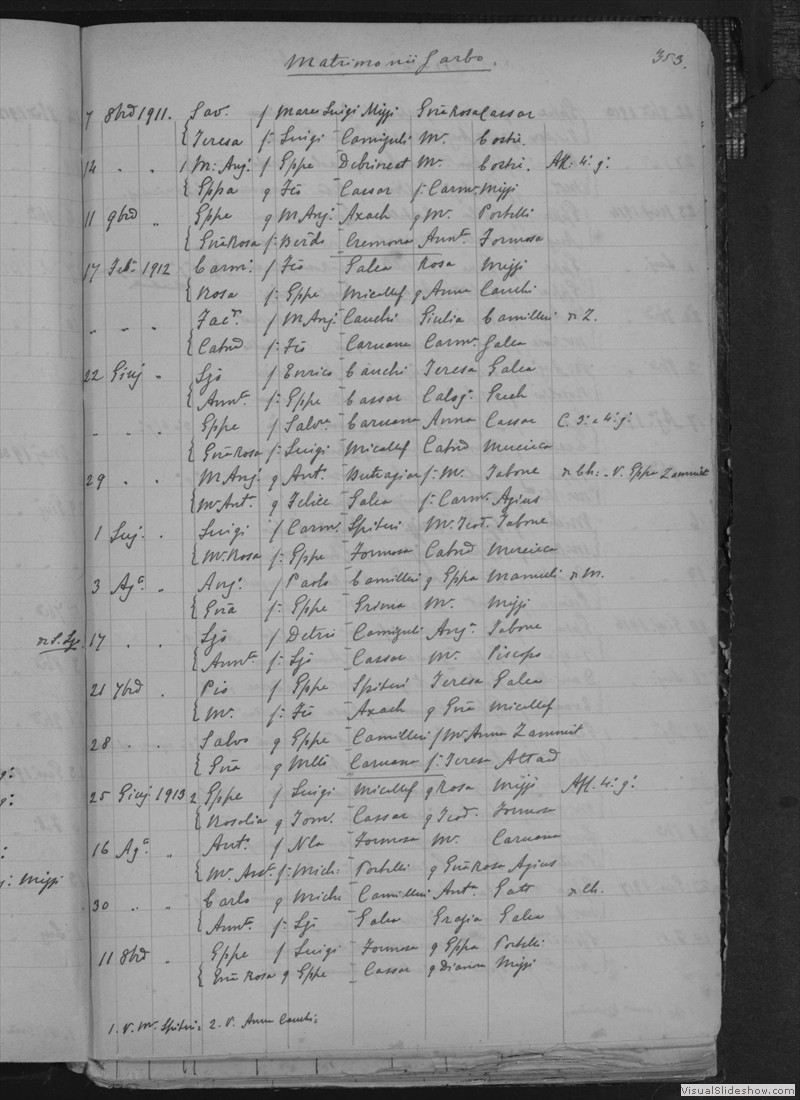 Matrimonii Garbo. 353.
7 8brd 1911. Sav. f Marco Luigi Mizzi GraRosa Cassar
{ Teresa f: Luigi Camiguli M. 
14 " " 1 M. Ang: f Eppe M. Aff: 4: g:
{ Eppa q Frs Cassar f: Carm. Mizzi
11 9brd " Eppe q M. Ang: Axach q M. Portelli
{ GraRosa f: Cremona Annta Formosa
17 Feb. 1912 Carm: f Frs Galea Rosa Mizzi
{ Rosa f: Eppe Micallef q Anna Cauchi
" " " f M. Ang: Cauchi Giulia Camilleri n Z.
{ Catnd f: Frs Caruana Carm. Galea
22 Giuj " Sjs f Enrico Cauchi Teresa Galea
{ Annta f: Eppe Cassar Calcj.
" " " Eppe f Salvr Caruana Anna Cassar C. 3: e 4: g:
{ GraRosa f: Luigi Micallef Catnd Mercieca
29 " " M. Ang: q Ant. Buttigieg f: M. Tabone V. Eppa Zammit
{ M. Ant. q Felice Galea f: Carm. Agius
1 Luj. " Luigi f Carm. Spiteri M. Teod. Tabone
{ M. Rosa f: Eppe Formosa Catnd Mercieca
3 Aga " Ang: f Paolo Camilleri q Eppa Mamuli n M.
{ Gra f: Eppe Grima M. Mizzi
n S. Lz. 17 " " Sjs f Camiguli Ang. Tabone
{ Annta f: Sjs Cassar M. Piscopo
21 7brd " Pio f Eppe Spiteri Teresa Galea
{ M. f: Frs Axach q Gra Micallef
28 " " Salvo q Eppe Camilleri f M. Anna Zammit
{ Gra q Caruana f: Teresa Attard
25 Giuj 1913 2 Eppe f Luigi Micallef q Rosa Mizzi Aff. 4: g:
{ Rosolia q Tom. Cassar q Teod. Formosa
16 Aga " Ant. f Nla Formosa M. Caruana
{ M. Ant. f: Mich: Portelli q GraRosa Agius
j: Mizzi
30 " " Carlo q Mich: Camilleri Ant. Gatt n Ch.
{ Annta f: Sjs Galea Grazia Galea
11 8brd " Eppe f Luigi Formosa q Eppa Portelli
{ Gra Rosa q Eppe Cassar q Dianora Mizzi
1. V. M. Spiteri: 2. V. Anna Cauchi:
VisualSlideshow.com